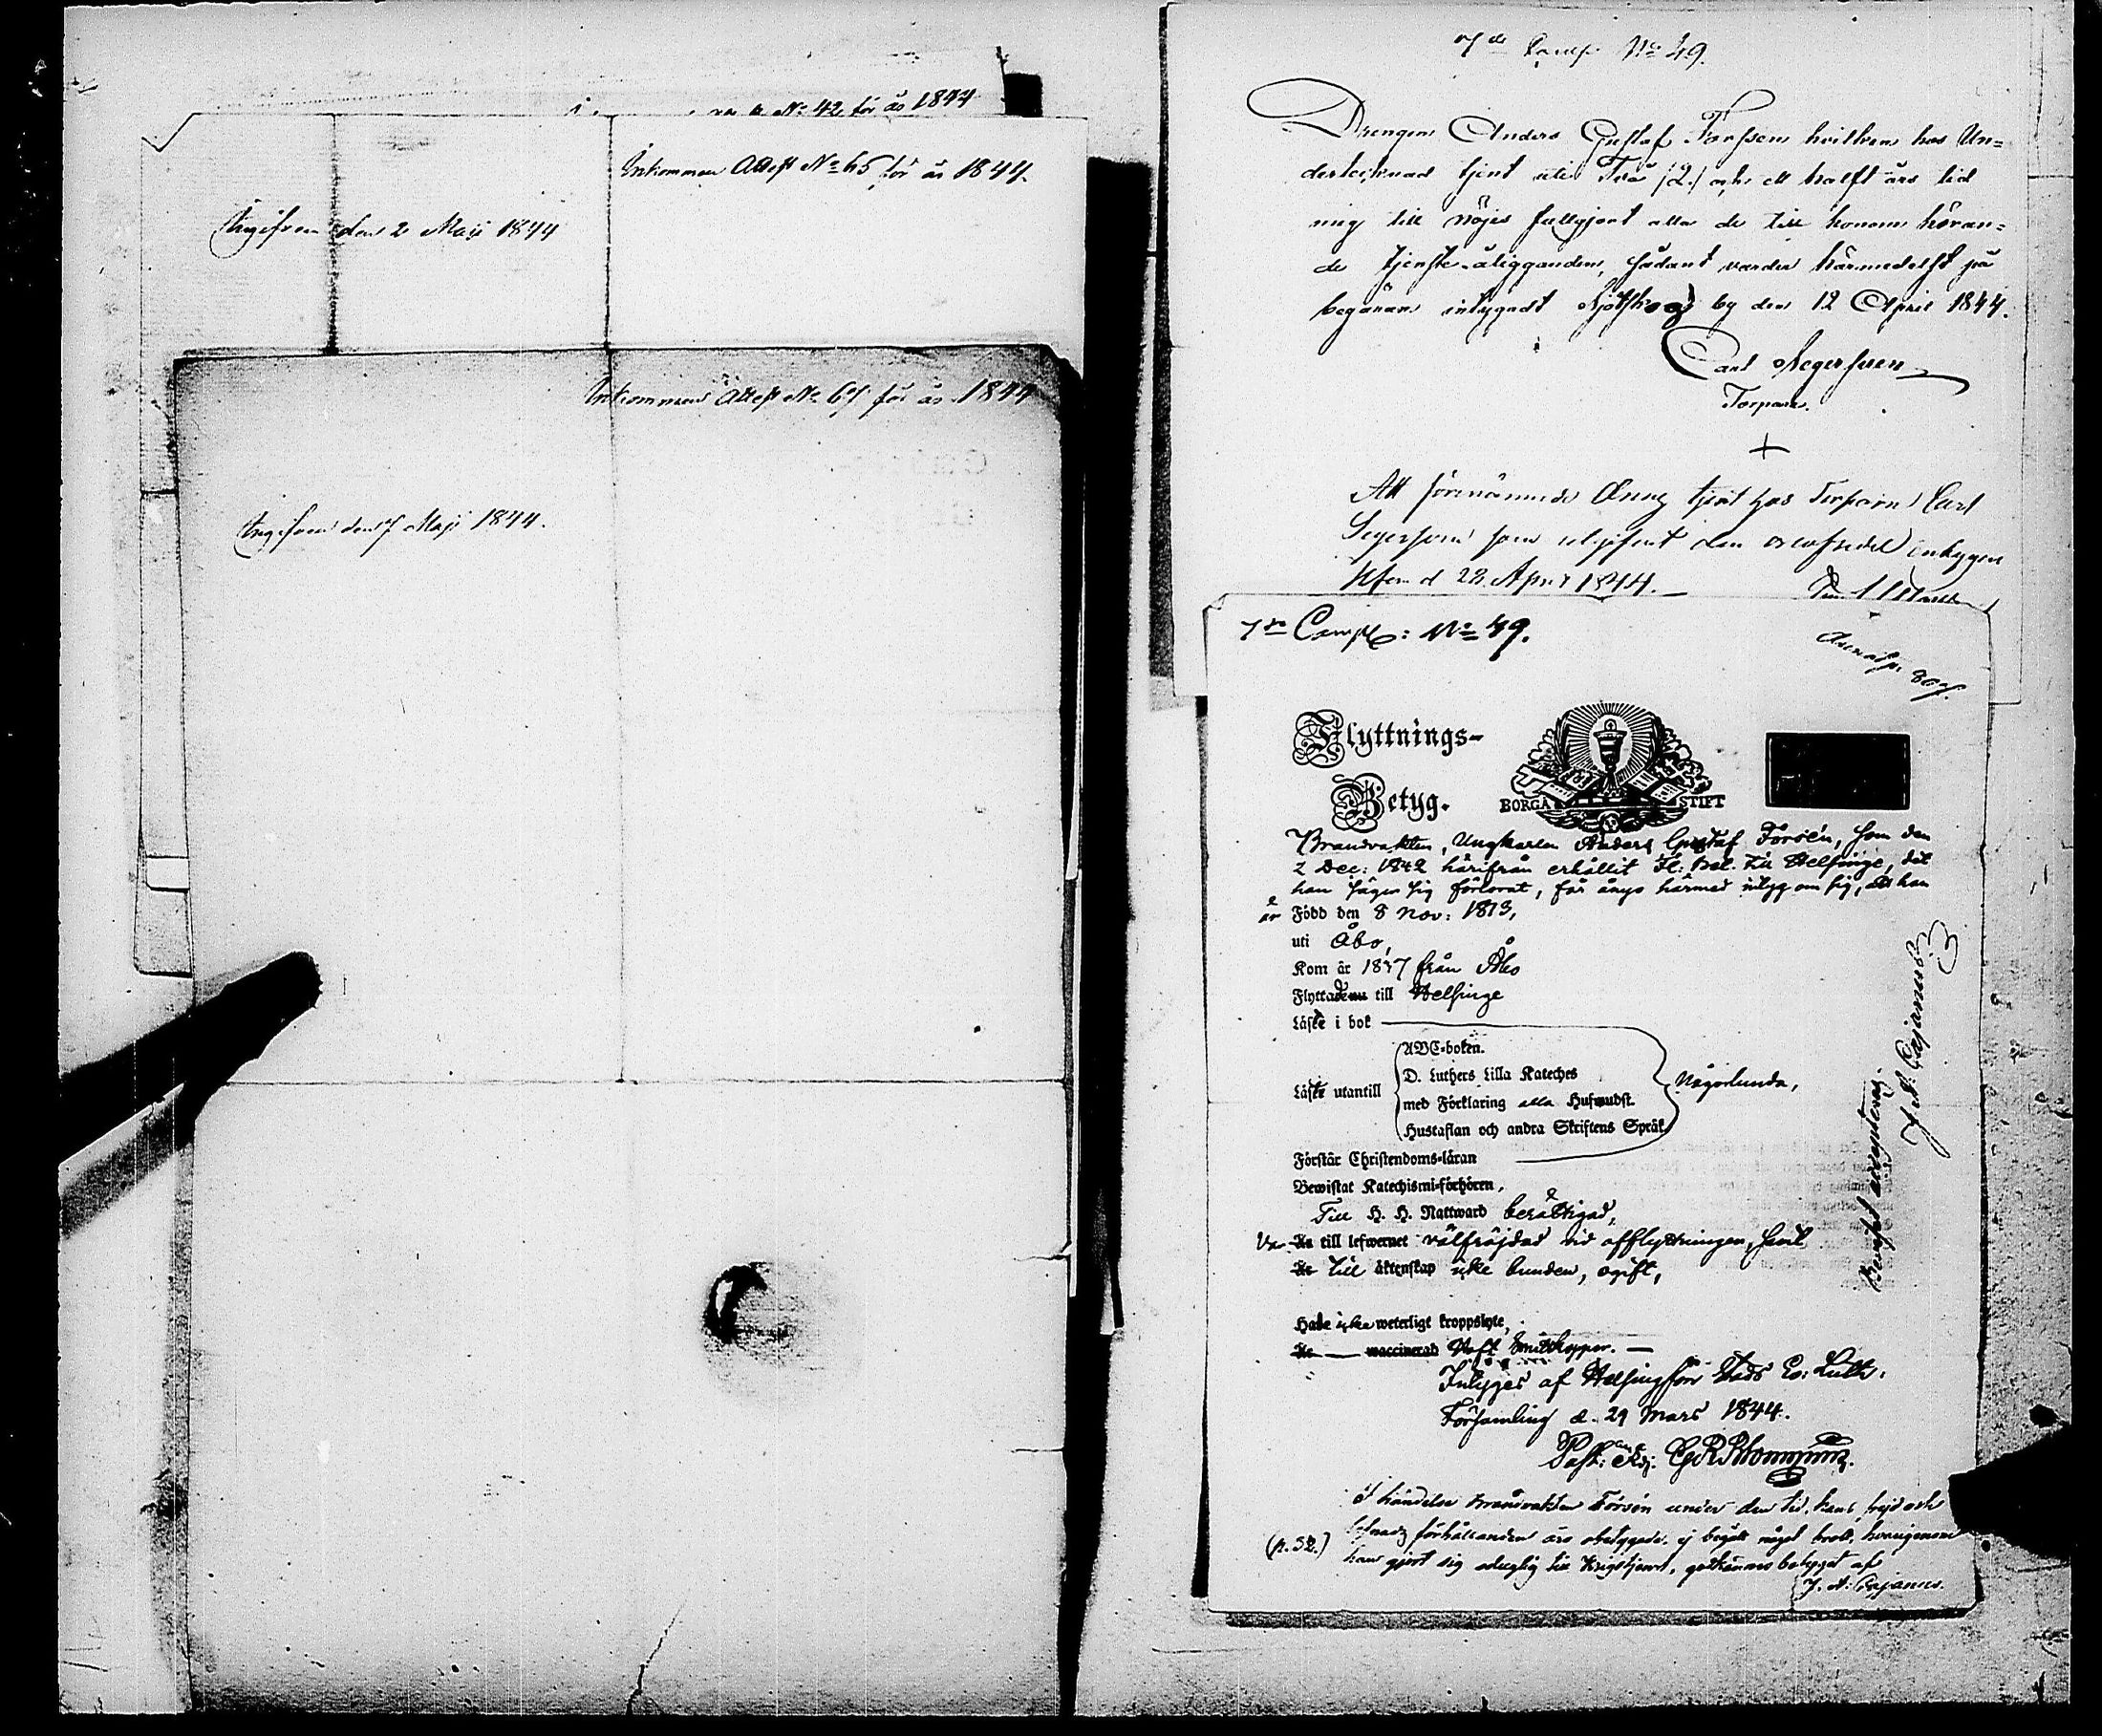 No 42 för år 1844
Inkommen Attest No 65 för år 1844.
Ingifven den 2 Maji 1844
Inkommen Attest No 67 för år 1844
Ingifven den 7 Maji 1844.
7de Comp. No 49.
Drengen Anders Gustaf Forssen hvilken hos Un=
dertecknad tjent uti Två (2) och ett halft års tid
mig till nöjes fullgjort alla de till honom höran=
de tjenste-åligganden, sådant varder härmedelst på
begäran intygadt by den 12 April 1844.
Carl Segersven
Torpare.
Att förenämnde Dräng tjent hos Torparen Carl
som utgifvit den orlofsedel intygar
d 22 April 1844.
7de Comp: No 49.
807.
Flyttnings-
Betyg.
BORGÅ STIFT
Brandvakten, Ungkarlen Anders Gustaf Forsén, som den
2 Dec: 1842 härifrån erhållit Fl: bet. till Helsinge, det
han säger sig förlorat, får ånyo härmed intyg om sig, att han
är Född den 8 Nov: 1813,
uti Åbo,
Kom år 1837 från Åbo
Flyttade till Helsinge
Läste i bok
ABC-boken.
D. Luthers Lilla Kateches
Läste utantill
med Förklaring alla Hufwudst.
Någorlunda,
Hustaflan och andra Skriftens Språk
Förstår Christendoms-läran
Bewistat Katechismi-förhören,
Till H. H. Nattward berättigad,
Var till lefwernet välfräjdad vid afflyttningen, samt
till äktenskap icke bunden, ogift,
Hade icke weterligt kroppslyte,
waccinerad Haft Smittkoppor.
Intyges af Helsingfors Stads Ev: Luth:
Församling d. 29 Mars 1844.
Past: Adj.
I händelse Brandvakten Forsén under den tid, hans frejd och
lefnads förhållanden äro obetygade, ej begått något brott, hvarigenom
(p. 52.) han gjort sig oduglig till Krigstjenst, godkännes betyget af
J. A: Cajanus.
Betyget accepteras.
J. A. Cajanus